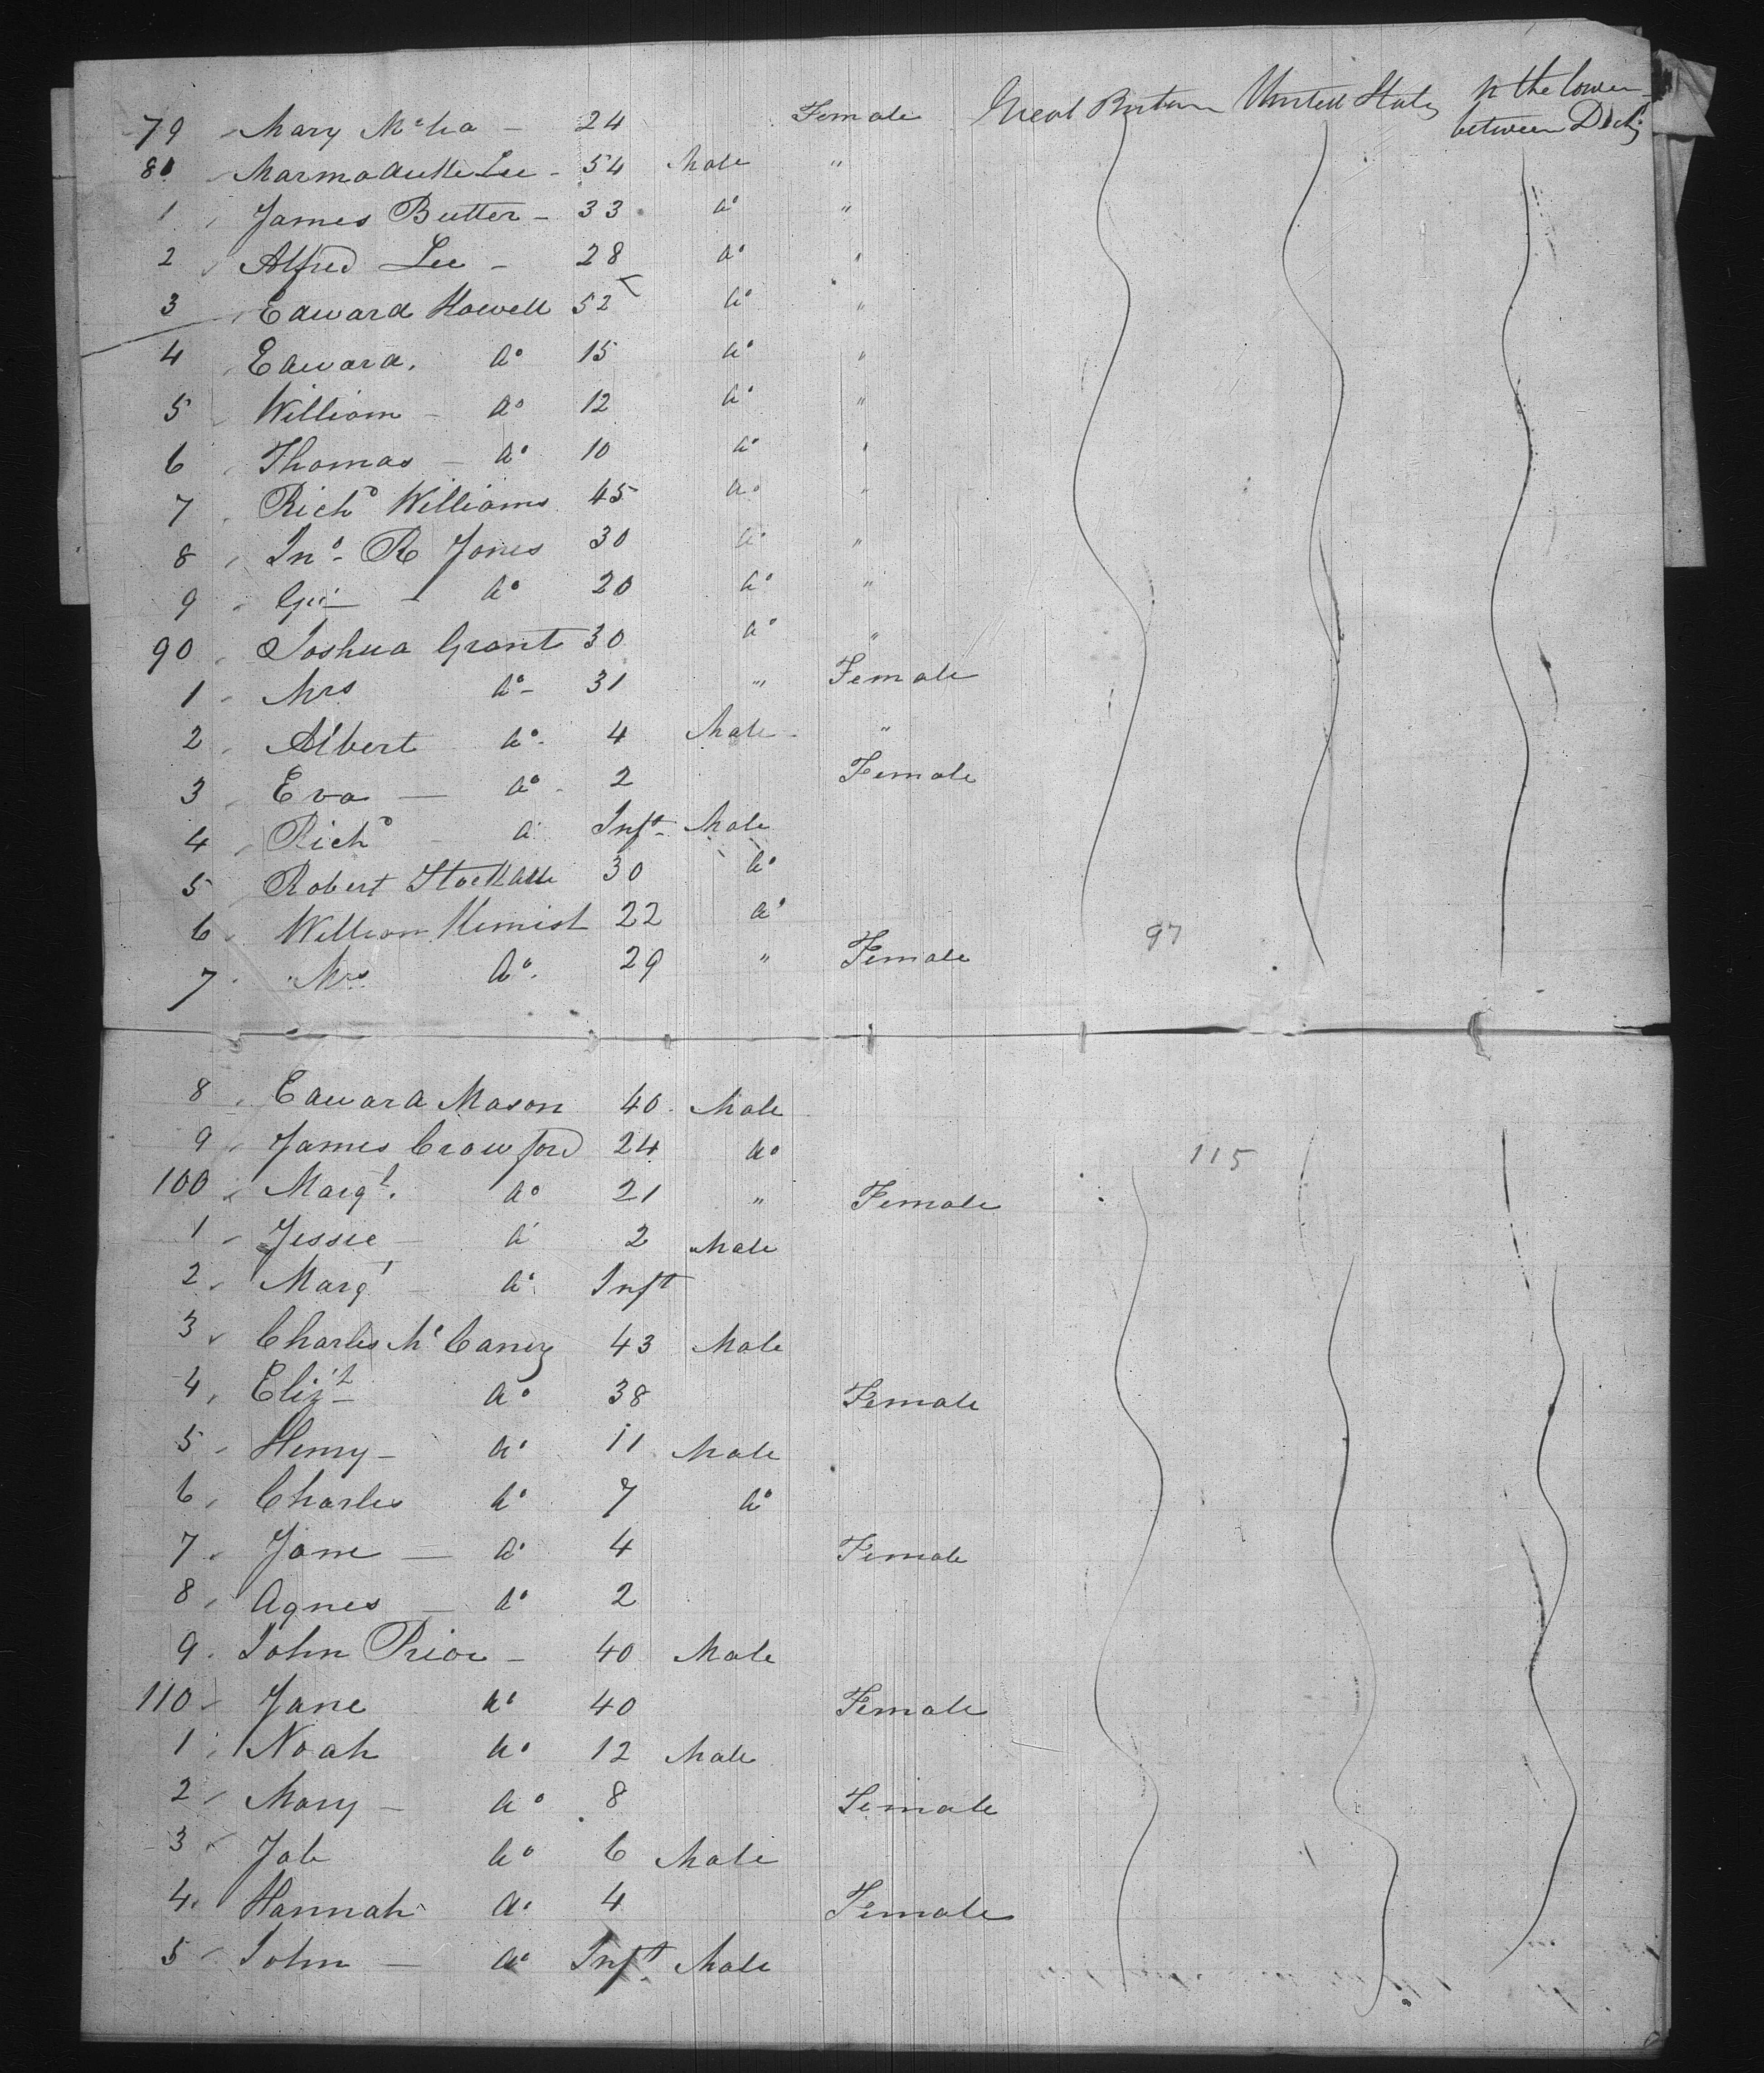 79 Mary McHa - 24 Female Great Britain United States In the lower
between Decks
80 Marmaduke Lee - 54 Male "
1 James Butter - 33 do "
2 Alfred Lee - 28 do "
3 Edward Howell 52 do "
4 Edward. do 15 do "
5 William - do 12 do "
6 Thomas - do 10 do "
7 Richd Williams 45 do "
8 Jno. R Jones 30 do "
9 - do 20 do "
90 Joshua Grant 30 do "
1 Mrs do - 31 " Female
2 Albert do - 4 Male - "
3 Eva - do - 2 Female
4 Richd - do Inft Male
5 Robert 30 do
6 William 22 do
7 Mrs do. 29 " Female 97
8 Edward Mason 40 Male
9 James Crawford 24 do 115
100 Margt. do 21 " Female
1 Jessie - do 2 Male
2 Margt - do Inft
3 Charles Mc Caney 43 Male
4 Elizt - do 38 Female
5 Henry - do 11 Male
6 Charles do 7 do
7 Jane - do 4 Female
8 Agnes - do 2
9 John Prior - 40 Male
110 Jane do 40 Female
1 Noah do 12 Male
2 Mary - do 8 Female
3 Job do 6 Male
4 Hannah do 4 Female
5 John - do Inft. Male